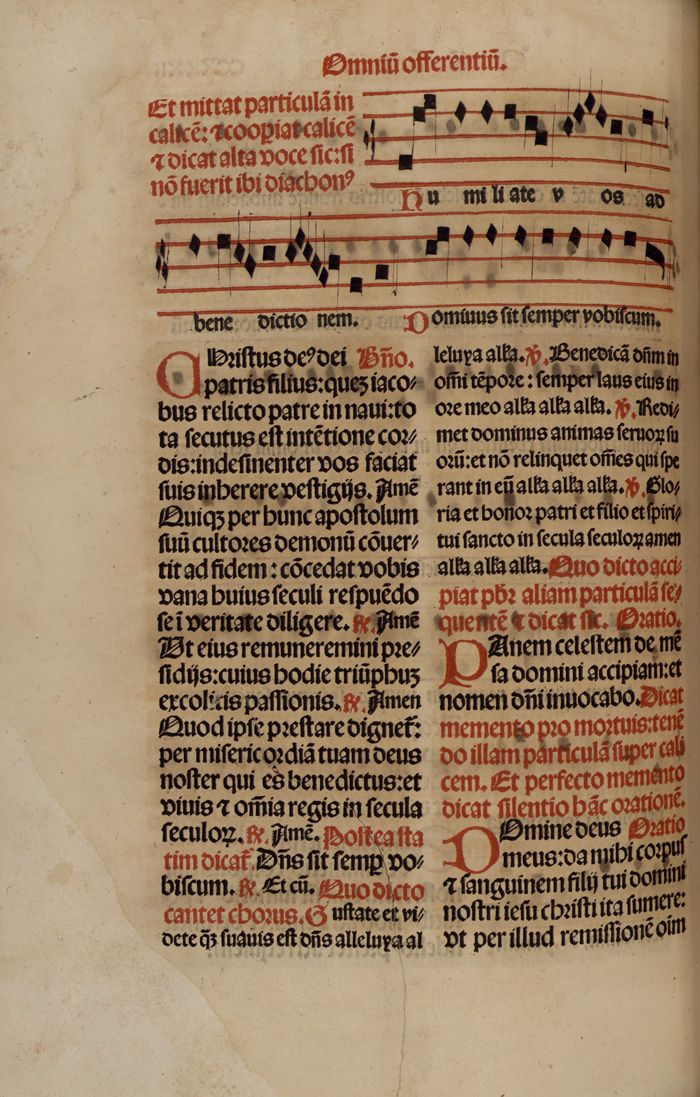 Omniū offerentiū.
Et mittat particulā in
calicē: ⁊ cooꝑiat calicē
⁊ dicat alta voce sic: si
nō fuerit ibi diachonꝰ
Hu mi li ate v os ad
bene dictio nem. Dominus sit semper vobiscum.
CHristus deꝰ dei Bn̄o.
patris filius: quez iaco⸗
bus relicto patre in naui: to
ta secutus est intētione cor⸗
dis: indesinenter vos faciat
suis inherere vestigijs. Amē
Quiqꝫ per hunc apostolum
suū cultores demonū cōuer⸗
tit ad fidem: cōcedat vobis
vana huius seculi respuēdo
se ī veritate diligere. ℟. Amē
Ut eius remuneremini pre⸗
sidijs: cuius hodie triūphuz
excolitis passionis. ℟. Amen
Quod ipse prestare dignet̄:
per misericordiā tuam deus
noster qui es benedictus: et
viuis ⁊ om̄ia regis in secula
seculoꝝ. ℟. Amē. Postea sta
tim dicat̄. Dn̄s sit semꝑ vo⸗
biscum. ℟. Et cū. Quo dicto
cantet chorus. Gustate et vi⸗
dete qꝫ suauis est dn̄s alleluya al
leluya alꝉa. ℣. Benedicā dn̄m in
om̄i tēpore: semper laus eius in
ore meo alꝉa alꝉa alꝉa. ℣. Redi⸗
met dominus animas seruoꝝ su
orū: et nō relinquet om̄es qui spe
rant in eū alꝉa alꝉa alꝉa. ℣. Glo⸗
ria et honor patri et filio et spiri⸗
tui sancto in secula seculoꝝ amen
alꝉa alꝉa alꝉa. Quo dicto acci⸗
piat pb̄r aliam particulā se⸗
quentē ⁊ dicat sic. Oratio.
PAnem celestem de mē
sa domini accipiam: et
nomen dn̄i inuocabo. Dicat
memento pro mortuis: tenē
do illam particulā super cali
cem. Et perfecto memento
dicat silentio hāc orationē.
DOmine deus Oratio
meus: da mihi corpus
⁊ sanguinem filij tui domini
nostri iesu christi ita sumere:
vt per illud remissionē oīm